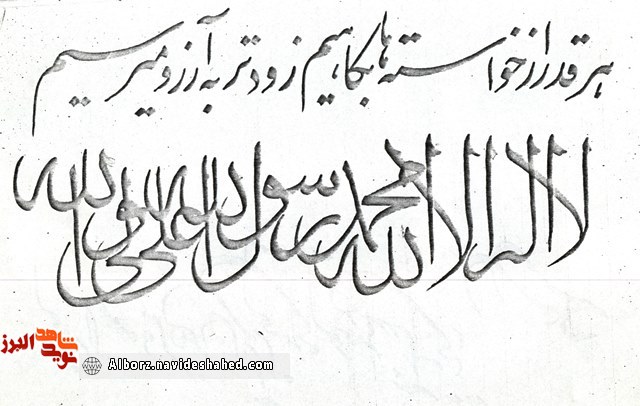 هر قدر از خواسته ها بکاهیم زودتر به آرزو میرسیم
لا اله الا الله محمد رسول الله علی ولی الله
شاهد
نوید البرز
Alborz.navideshahed.com